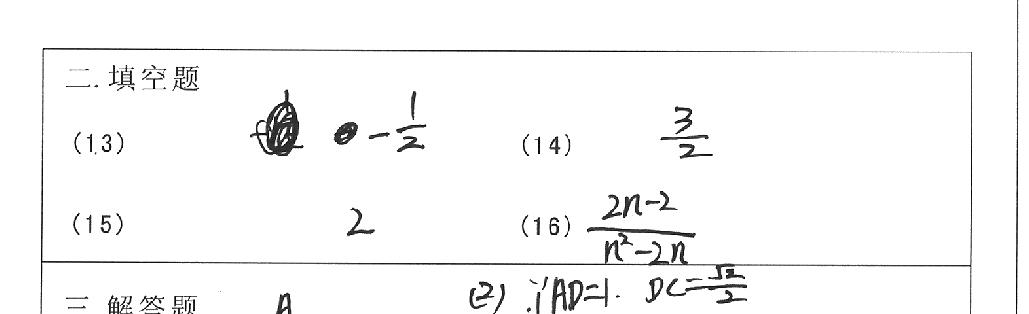 二.填空题
(13) -1/2 (14) 3/2
(15) 2 (16) (2n-2)/(n²-2n)
三.解答题 A (2) ∵AD=1. DC=√2/2